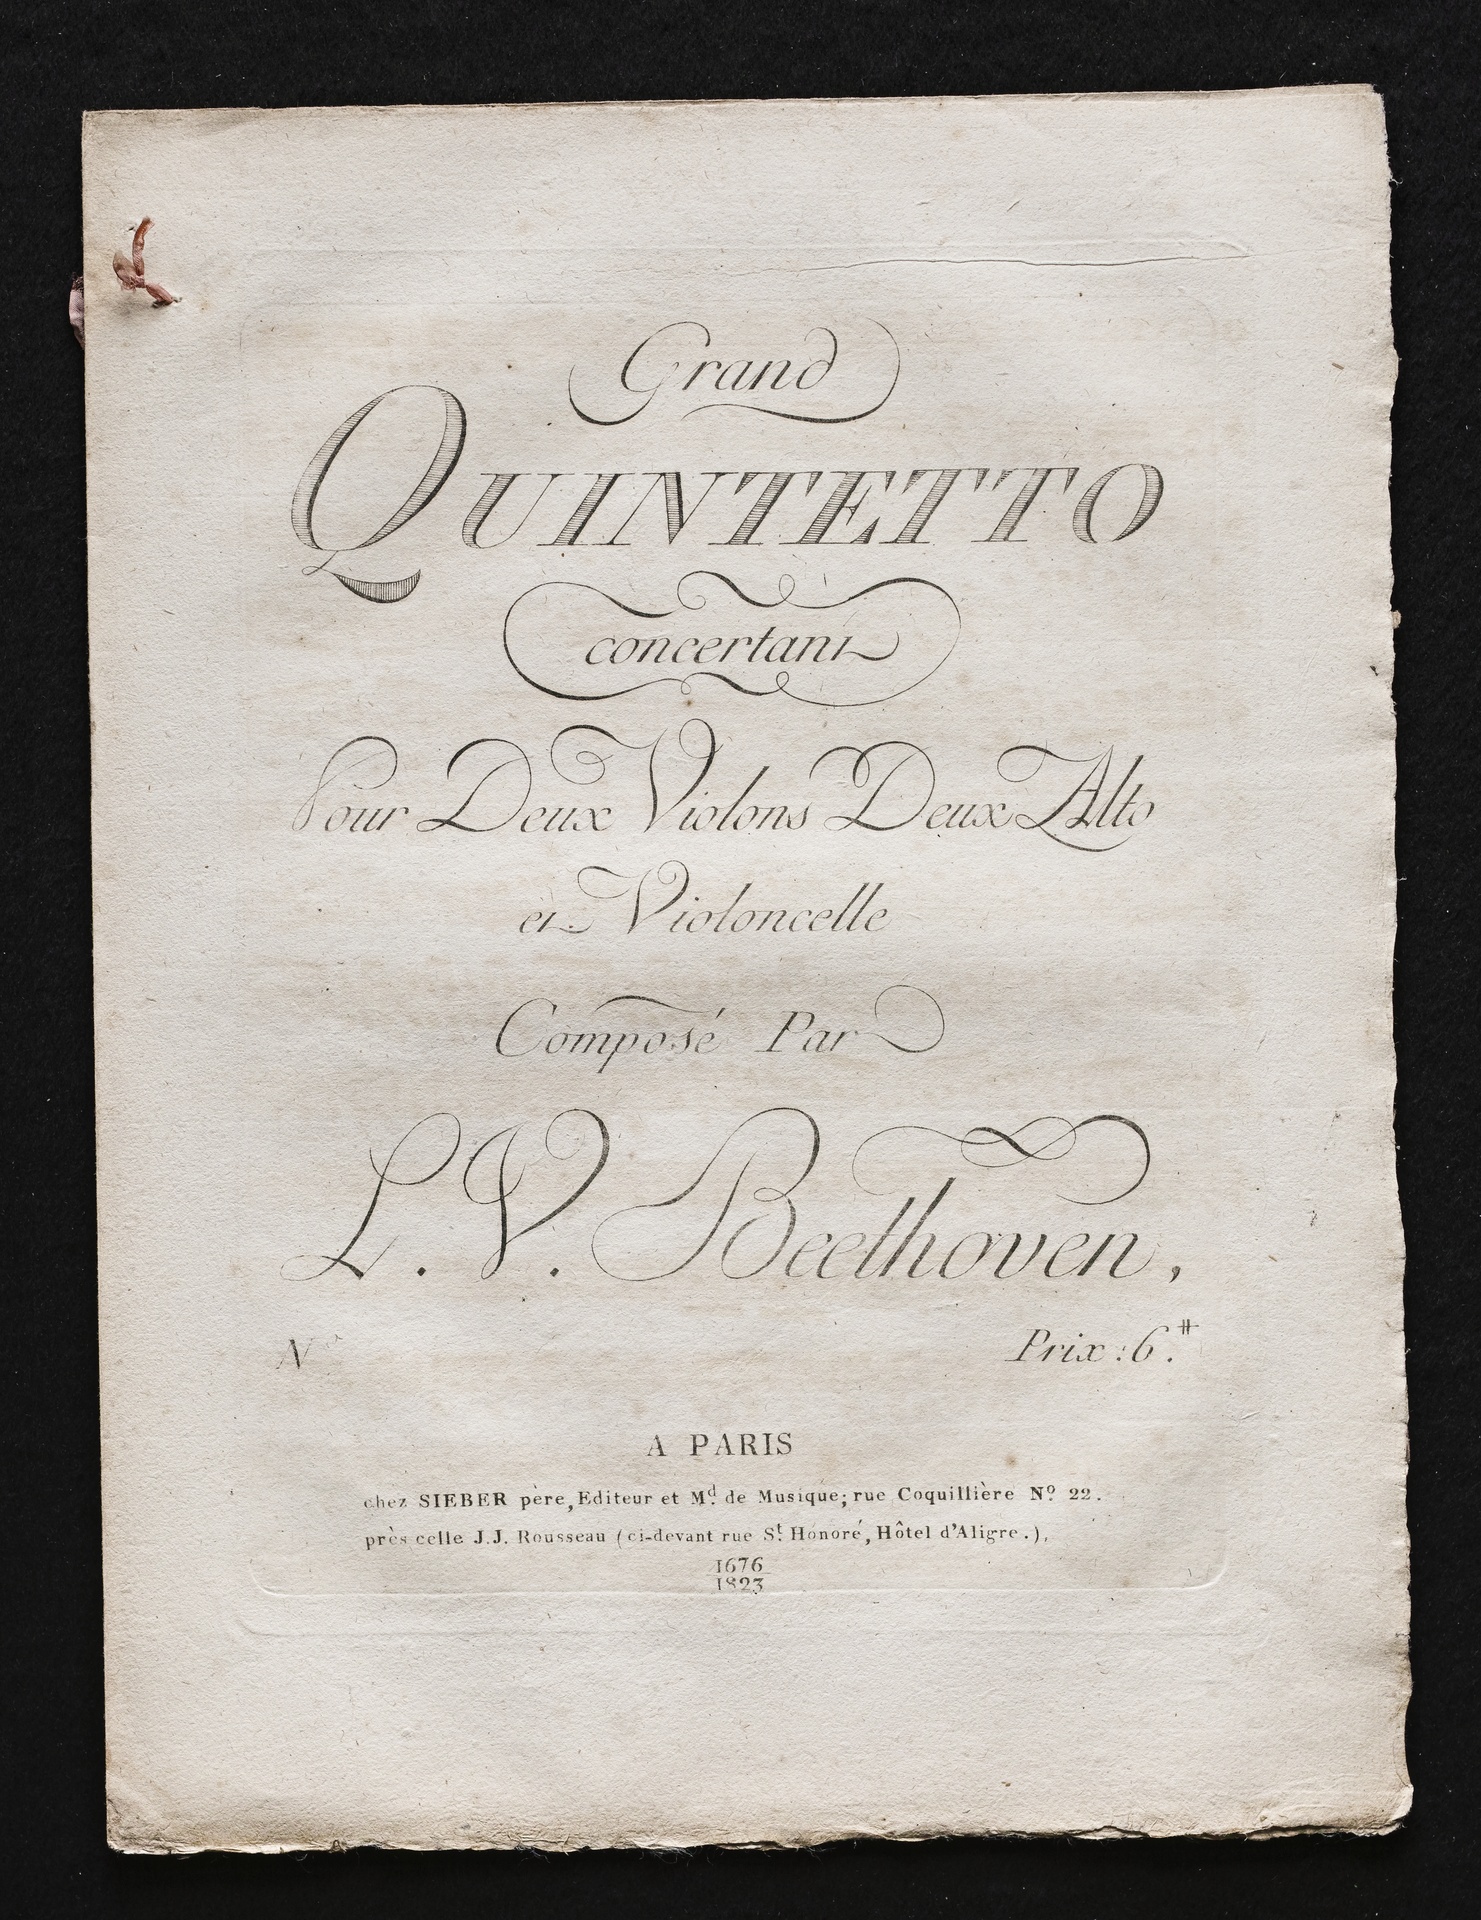 Grand
QUINTETTO
concertant
Pour Deux Violons Deux Alto
et Violoncelle
Composé Par
L. V. Beethoven,
N° Prix: 6.#
A PARIS
chez SIEBER père, Editeur et Md. de Musique; rue Coquillière No. 22.
près celle J.J. Rousseau (ci-devant rue St. Honoré, Hôtel d'Aligre.),
1676
1823